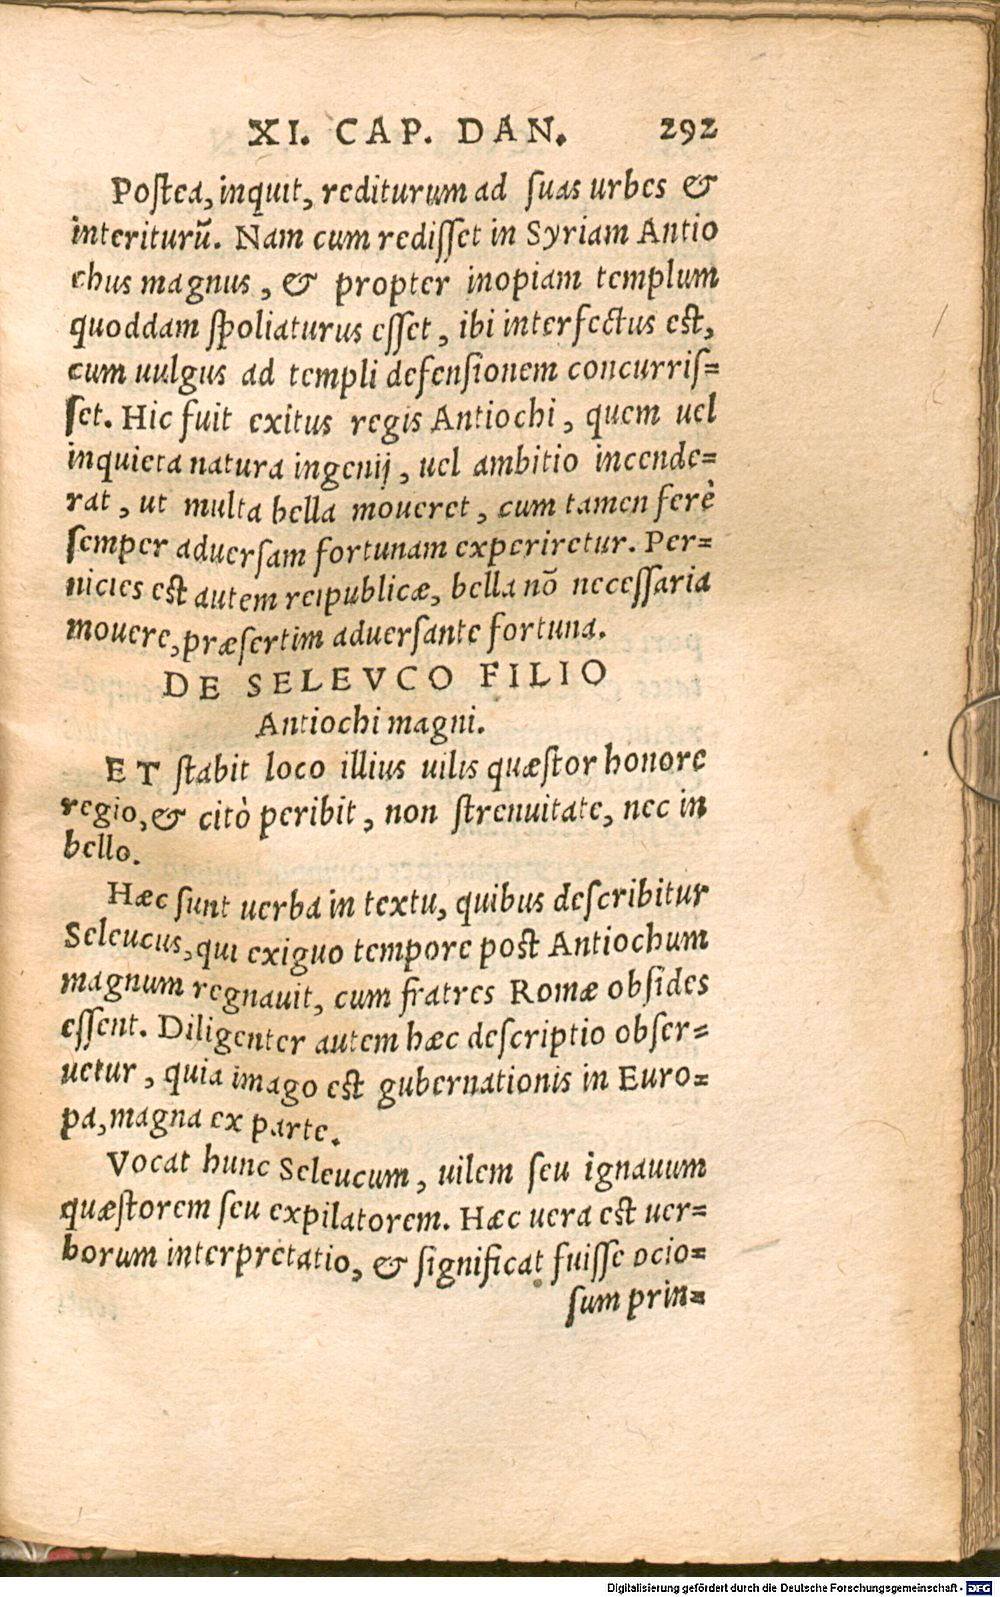 XI. CAP. DAN. 292
Postea, inquit, rediturum ad suas urbes &
interiturũ. Nam cum redisset in Syriam Antio
chus magnus, & propter inopiam templum
quoddam spoliaturus esset, ibi interfectus est,
cum uulgus ad templi defensionem concurris=
set. Hic fuit exitus regis Antiochi, quem uel
inquieta natura ingenij, uel ambitio incende=
rat, ut multa bella moueret, cum tamen ferè
semper aduersam fortunam experiretur. Per=
nicies est autem reipublicæ, bella nõ necessaria
mouere, præsertim aduersante fortuna.
DE SELEVCO FILIO
Antiochi magni.
ET stabit loco illius uilis quæstor honore
regio, & citò peribit, non strenuitate, nec in
bello.
Hæc sunt uerba in textu, quibus describitur
Seleucus, qui exiguo tempore post Antiochum
magnum regnauit, cum fratres Romæ obsides
essent. Diligenter autem hæc descriptio obser=
uetur, quia imago est gubernationis in Euro=
pa, magna ex parte.
Vocat hunc Seleucum, uilem seu ignauum
quæstorem seu expilatorem. Hæc uera est uer=
borum interpretatio, & significat fuisse ocio=
sum prin=
Digitalisierung gefördert durch die Deutsche Forschungsgemeinschaft - DFG